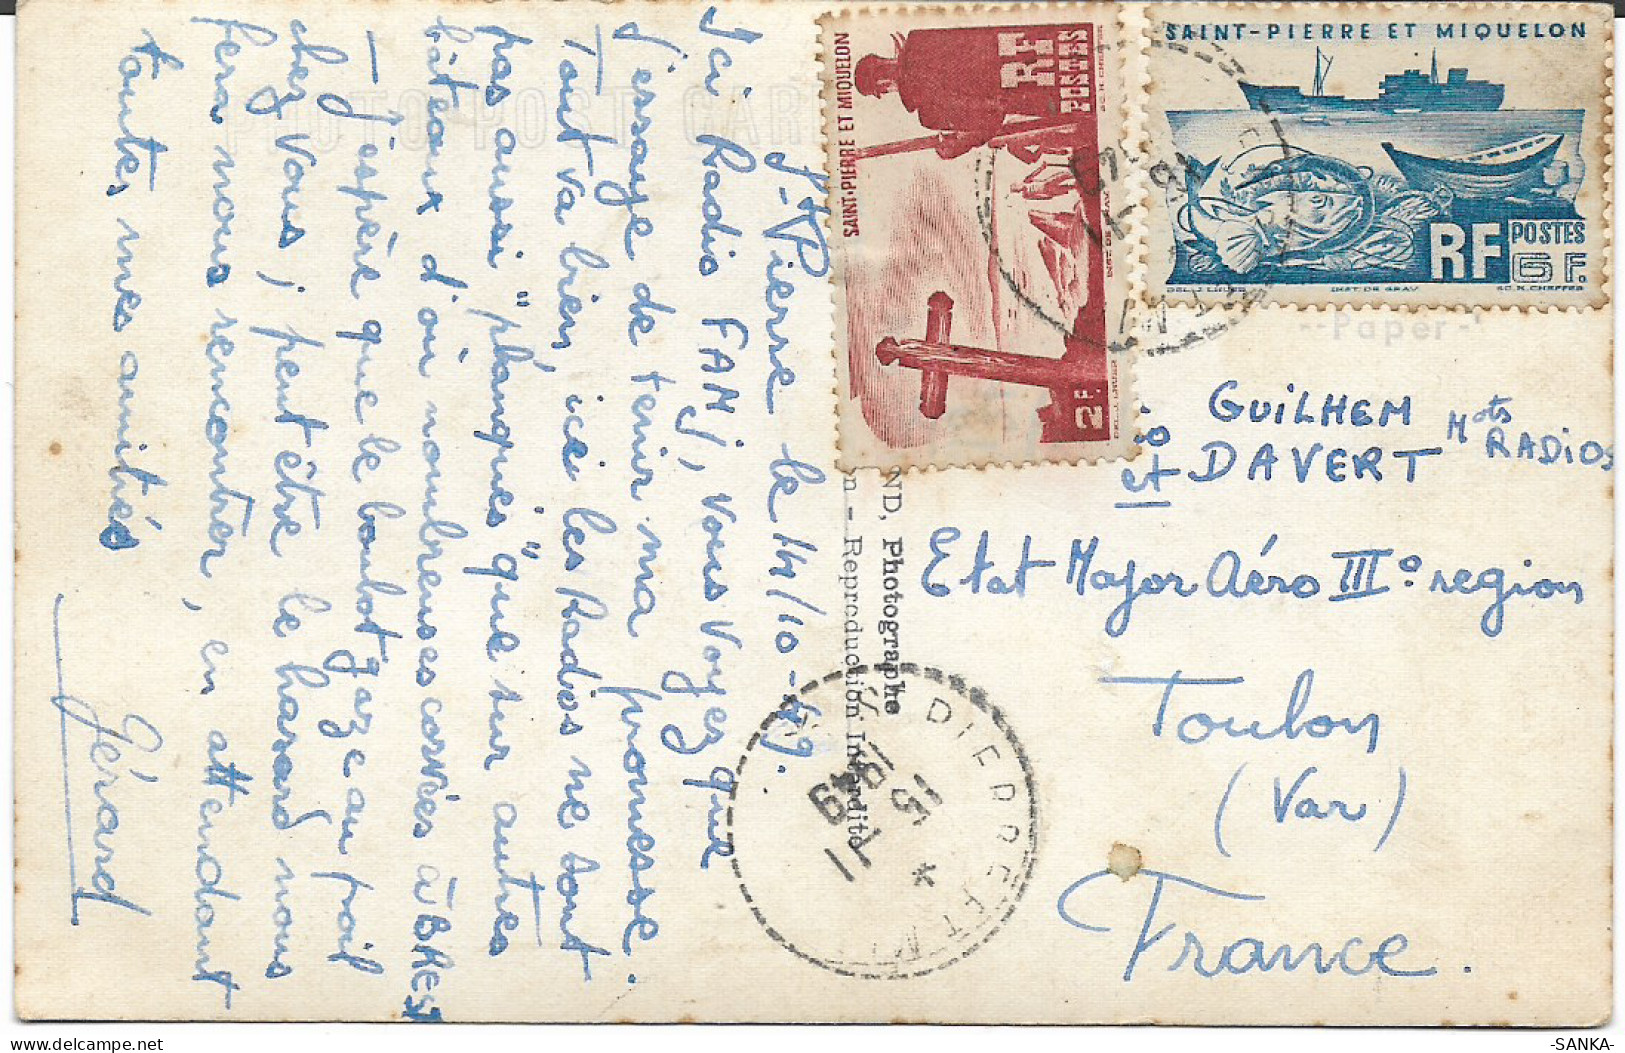 St Pierre le 14/10-49.
Ici Radio FAMJ, Vous Voyez que
j'essaye de tenir ma promesse.
Tout va bien, ici les Radios ne sont
pas aussi "planqués" que sur autres
bâteaux d'où nombreuses corvées à BREST
- J'espère que le boulot gaze au poil
chez Vous, peut être le hasard nous
fera nous rencontrer, en attendant
toutes mes amitiés
Gérard
PHOTO POST CAR
ND, Photographe
n - Reproduction Interdite
SAINT-PIERRE ET MIQUELON
RF
POSTES
2 F.
SAINT-PIERRE ET MIQUELON
RF POSTES
6 F.
--Paper-
GUILHEM
et DAVERT Mots RADIOS
Etat Major Aéro III° region
Toulon
(Var)
France.
ST PIERRE ET MI
15
1949
*
-SANKA-